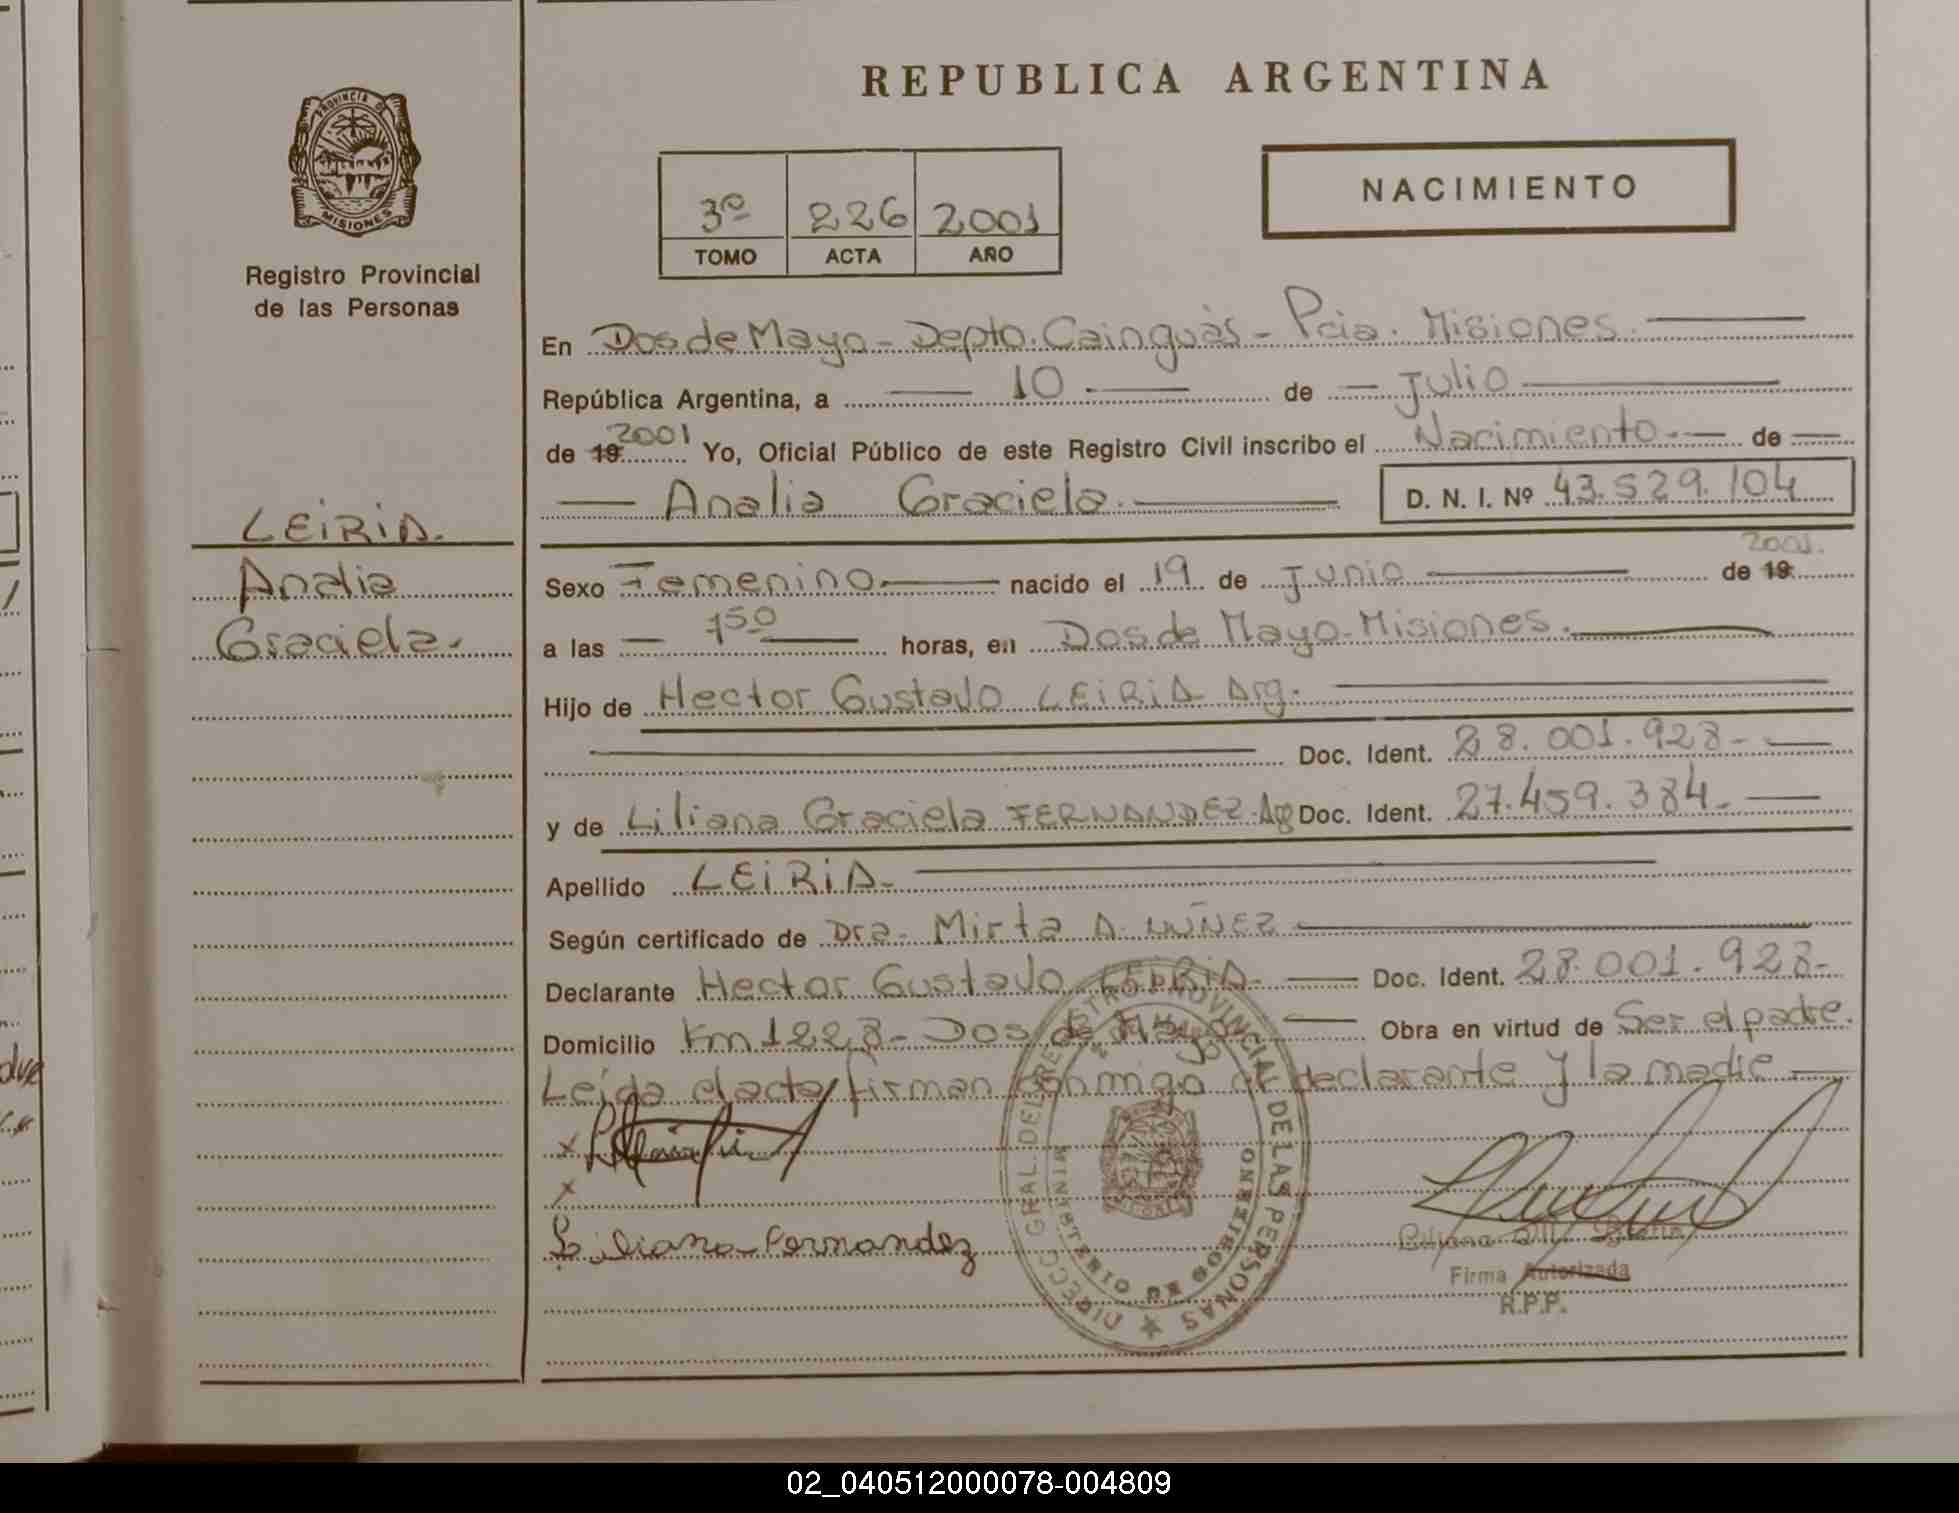 REPUBLICA ARGENTINA
PROVINCIA DE
MISIONES
Registro Provincial
de las Personas
3º 226 2001
TOMO ACTA AÑO
NACIMIENTO
En Dos de Mayo - Depto. Cainguás - Pcia. Misiones.
República Argentina, a 10 de Julio
de 19 2001 Yo, Oficial Público de este Registro Civil inscribo el Nacimiento de
Analia Graciela. D. N. I. Nº 43.529.104
LEIRIA.
Analia
Graciela.
Sexo Femenino nacido el 19 de Junio de 19 2001.
a las 7 50 horas, en Dos de Mayo - Misiones.
Hijo de Hector Gustavo LEIRIA Arg.
Doc. Ident. 28.001.928-
y de Liliana Graciela FERNANDEZ - Arg Doc. Ident. 27.459.384-
Apellido LEIRIA.
Según certificado de Dra. Mirta A. NUÑEZ
Declarante Hector Gustavo LEIRIA. Doc. Ident. 28.001.928-
Domicilio Km 1228 - Dos de Mayo Obra en virtud de Ser el padre.
Leída el acta, firman conmigo el declarante y la madre
x
x
Liliana Fernandez
DIRECC. GRAL. DEL REGISTRO PROVINCIAL DE LAS PERSONAS
MINISTERIO DE GOBIERNO
Liliana
Firma Autorizada
R.P.P.
02_040512000078-004809